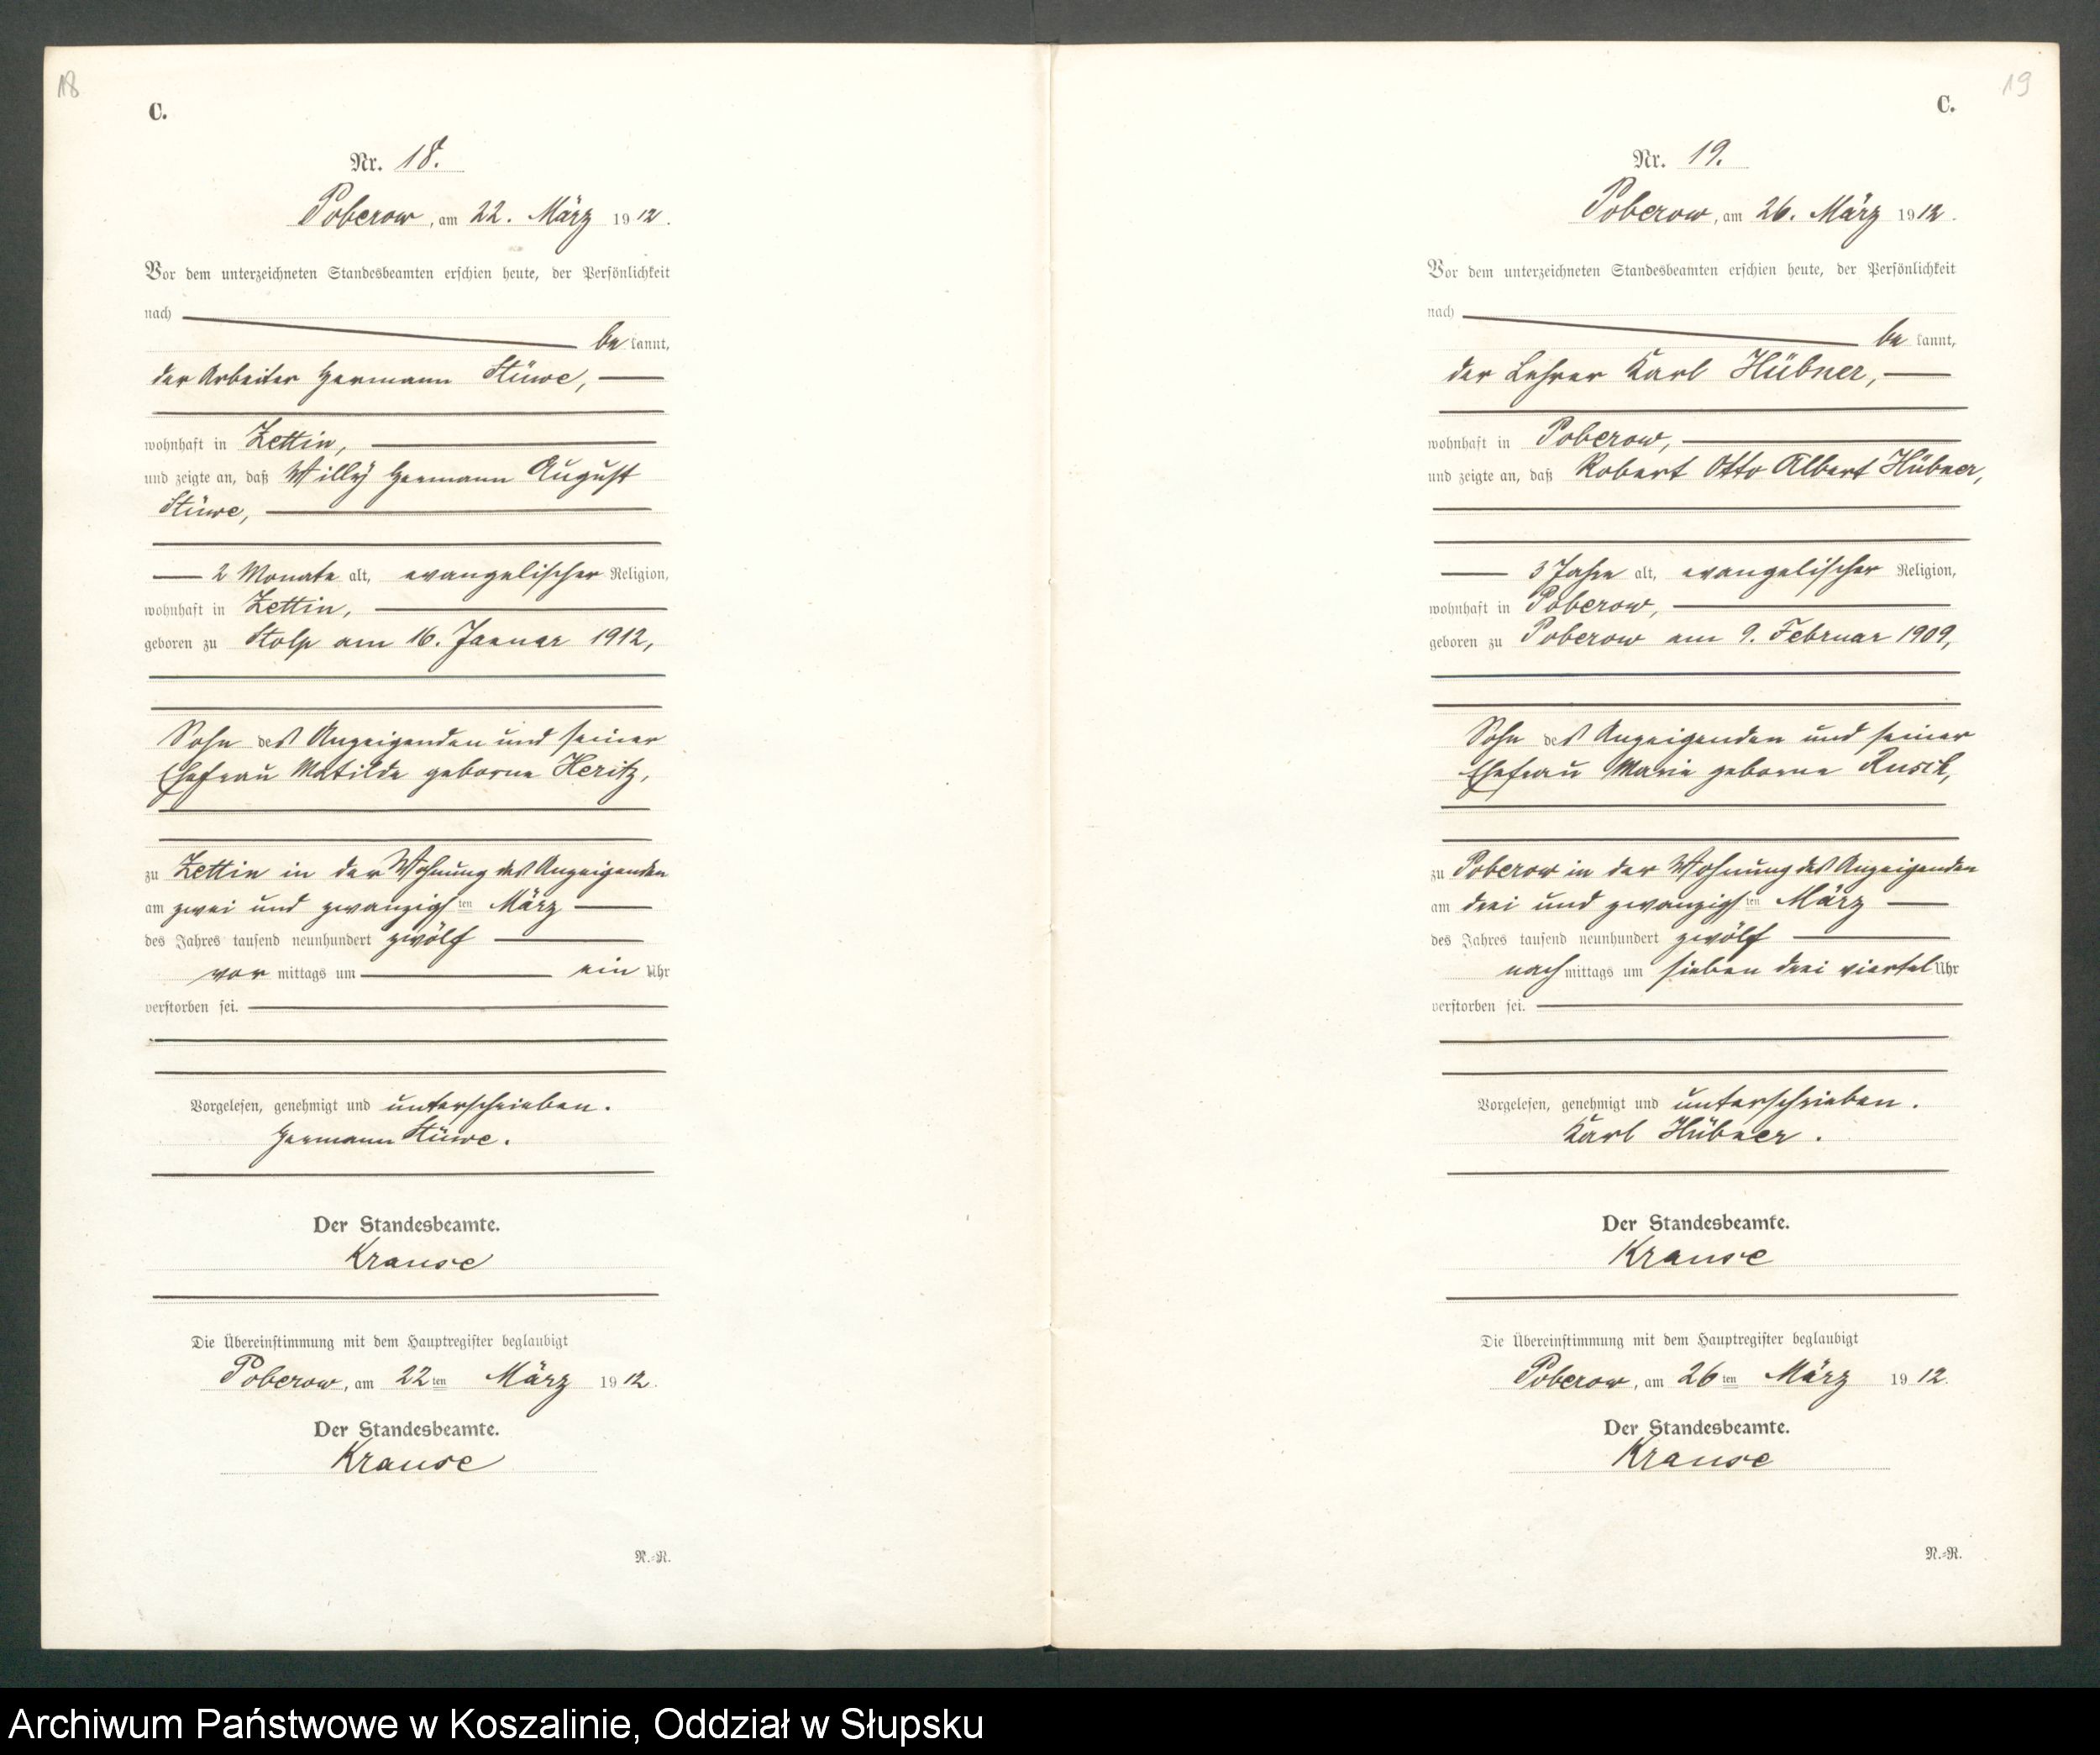 18
C.
Nr. 18.
Poberow, am 22. März 1912.
Vor dem unterzeichneten Standesbeamten erschien heute, der Persönlichkeit
nach
be kannt,
der Arbeiter Hermann Stüwe,
wohnhaft in Zettin,
und zeigte an, daß Willy Hermann August
Stüwe,
2 Monate alt, evangelischer Religion,
wohnhaft in Zettin,
geboren zu Stolp am 16. Januar 1912,
Sohn des Anzeigenden und seiner
Ehefrau Matilde geborne Heritz,
zu Zettin in der Wohnung des Anzeigenden
am zwei und zwanzigsten März
des Jahres tausend neunhundert zwölf
vor mittags um ein Uhr
verstorben sei.
Vorgelesen, genehmigt und unterschrieben.
Hermann Stüwe.
Der Standesbeamte.
Krause
Die Übereinstimmung mit dem Hauptregister beglaubigt
Poberow, am 22ten März 1912.
Der Standesbeamte.
Krause
N.-R.
19
C.
Nr. 19.
Poberow, am 26. März 1912.
Vor dem unterzeichneten Standesbeamten erschien heute, der Persönlichkeit
nach
be kannt,
der Lehrer Karl Hübner,
wohnhaft in Poberow,
und zeigte an, daß Robert Otto Albert Hübner,
3 Jahre alt, evangelischer Religion,
wohnhaft in Poberow,
geboren zu Poberow am 9. Februar 1909,
Sohn des Anzeigenden und seiner
Ehefrau Marie geborne Rusch,
zu Poberow in der Wohnung des Anzeigenden
am drei und zwanzigsten März
des Jahres tausend neunhundert zwölf
nach mittags um sieben drei viertel Uhr
verstorben sei.
Vorgelesen, genehmigt und unterschrieben.
Karl Hübner.
Der Standesbeamte.
Krause
Die Übereinstimmung mit dem Hauptregister beglaubigt
Poberow, am 26ten März 1912.
Der Standesbeamte.
Krause
N.-R.
Archiwum Państwowe w Koszalinie, Oddział w Słupsku